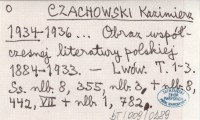 0 CZACHOWSKI Kazimierz
1934-1936... Obraz współ-
czesnej literatury polskiej
1884-1933. — Lwów. T. 1-3.
Ss. nlb. 8, 355, nlb. 3, + nlb. 8,
442, VII + nlb. 1, 782.